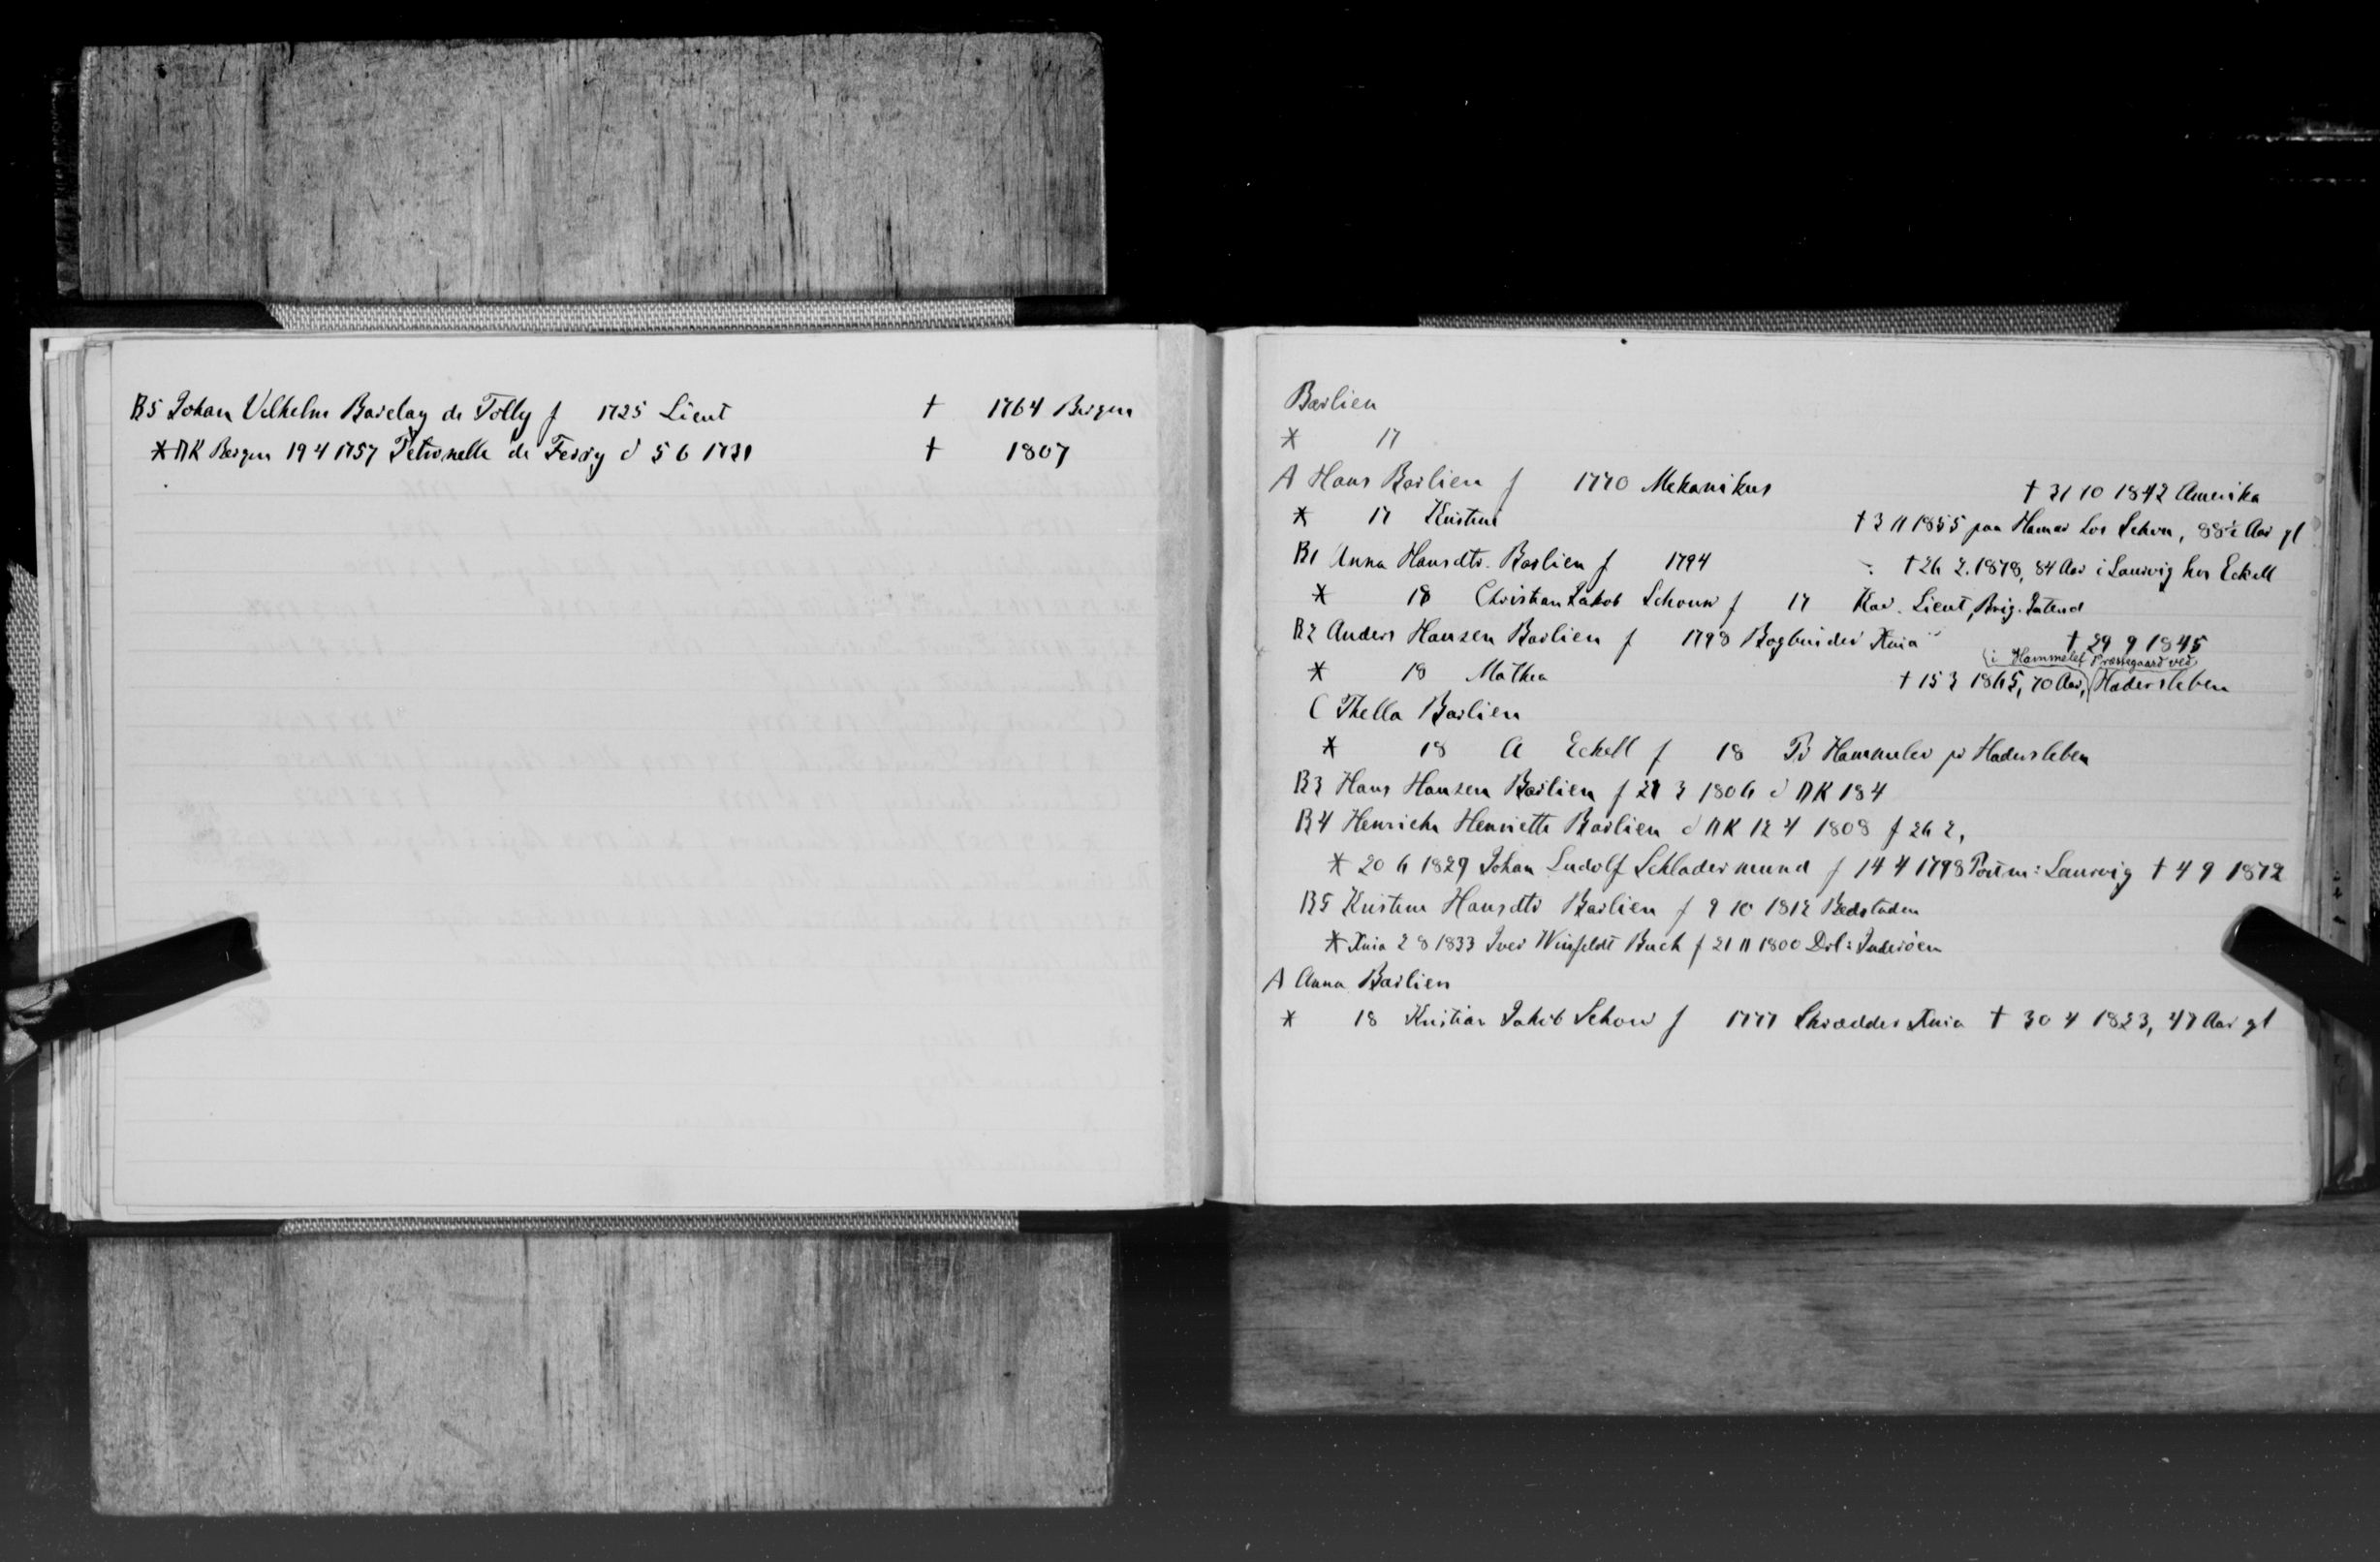 B5 Johan Vilhelm Barclay de Tolly f 1725 Lieut † 1764 Bergen
* DK Bergen 19 4 1757 Petronelle de Ferry d 5 6 1731 † 1807
Barlien
* 17
A Hans Barlien f 1770 Mekanikus † 31 10 1842 Amerika
* 17 Kristine † 3 11 1855 paa Hamar hos Schou, 88½ Aar gl
B1 Anna Hansdtr. Barlien f 1794 † 26 2. 1878, 84 Aar i Laurvig hos Eckell
* 18 Christian Jakob Schouw f 17 Kav. Lieut, Brig. Intend
B2 Anders Hansen Barlien f 1798 Bogbinder Xnia † 29 9 1845
(i Hammelef Præstegaard ved)
* 18 Mathea † 15 3 1865, 70 Aar, Hadersleben
C Thella Barlien
* 18 A Eckell f 18 Pr Hammelev pr Hadersleben
B3 Hans Hansen Barlien f 21 3 1806 d DK 18 4
B4 Henricke Henriette Barlien d DK 12 4 1808 f 26 2,
* 20 6 1829 Johan Ludolf Schladermund f 14 4 1798 Postm: Laurvig † 4 9 1872
B5 Kristine Hansdtr Barlien f 9 10 1812 Bedstaden
* Xnia 2 8 1833 Iver Wingfeldt Buch f 21 11 1800 Drl: Inderöen
A Anna Barlien
* 18 Kristian Jakob Schow f 1777 Skrædder Xnia † 30 4 1823, 47 Aar gl